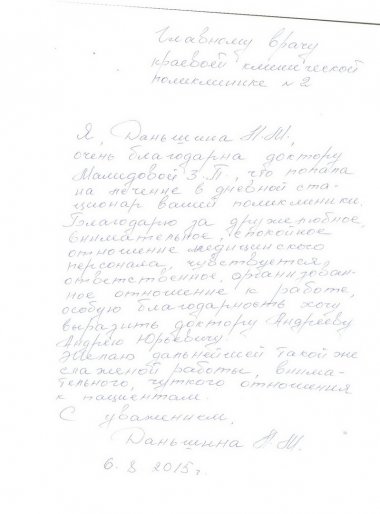 Главному врачу
краевой клинической
поликлинике №2
Я, Даньшина Н.М.,
очень благодарна доктору
Мамидовой З.П., что попала
на лечение в дневной ста-
ционар вашей поликлиники.
Благодарю за дружелюбное,
внимательное, спокойное
отношение медицинского
персонала, чувствуется
ответственное, организован-
ное отношение к работе,
особую благодарность хочу
выразить доктору Андрееву
Андрею Юрьевичу!
Желаю дальнейшей такой же
слаженной работы, внима-
тельного, чуткого отношения
к пациентам.
С уважением,
Даньшина Н.М.
6. 8. 2015г.